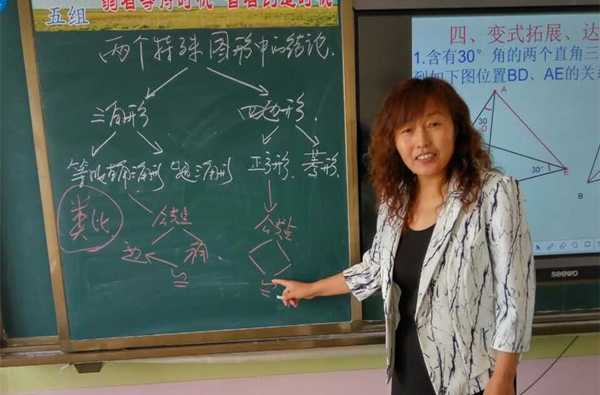 五组
弱者等待时机 智者创造时机
两个特殊图形中的结论.
三角形
四边形.
等腰直角三角形
等边三角形
正方形.
菱形.
类比
公共边
边
角.
≌
≌
四、变式拓展、达
1.含有30°角的两个直角三
到如下图位置BD、AE的关
A
30
30°
E
B
seewo